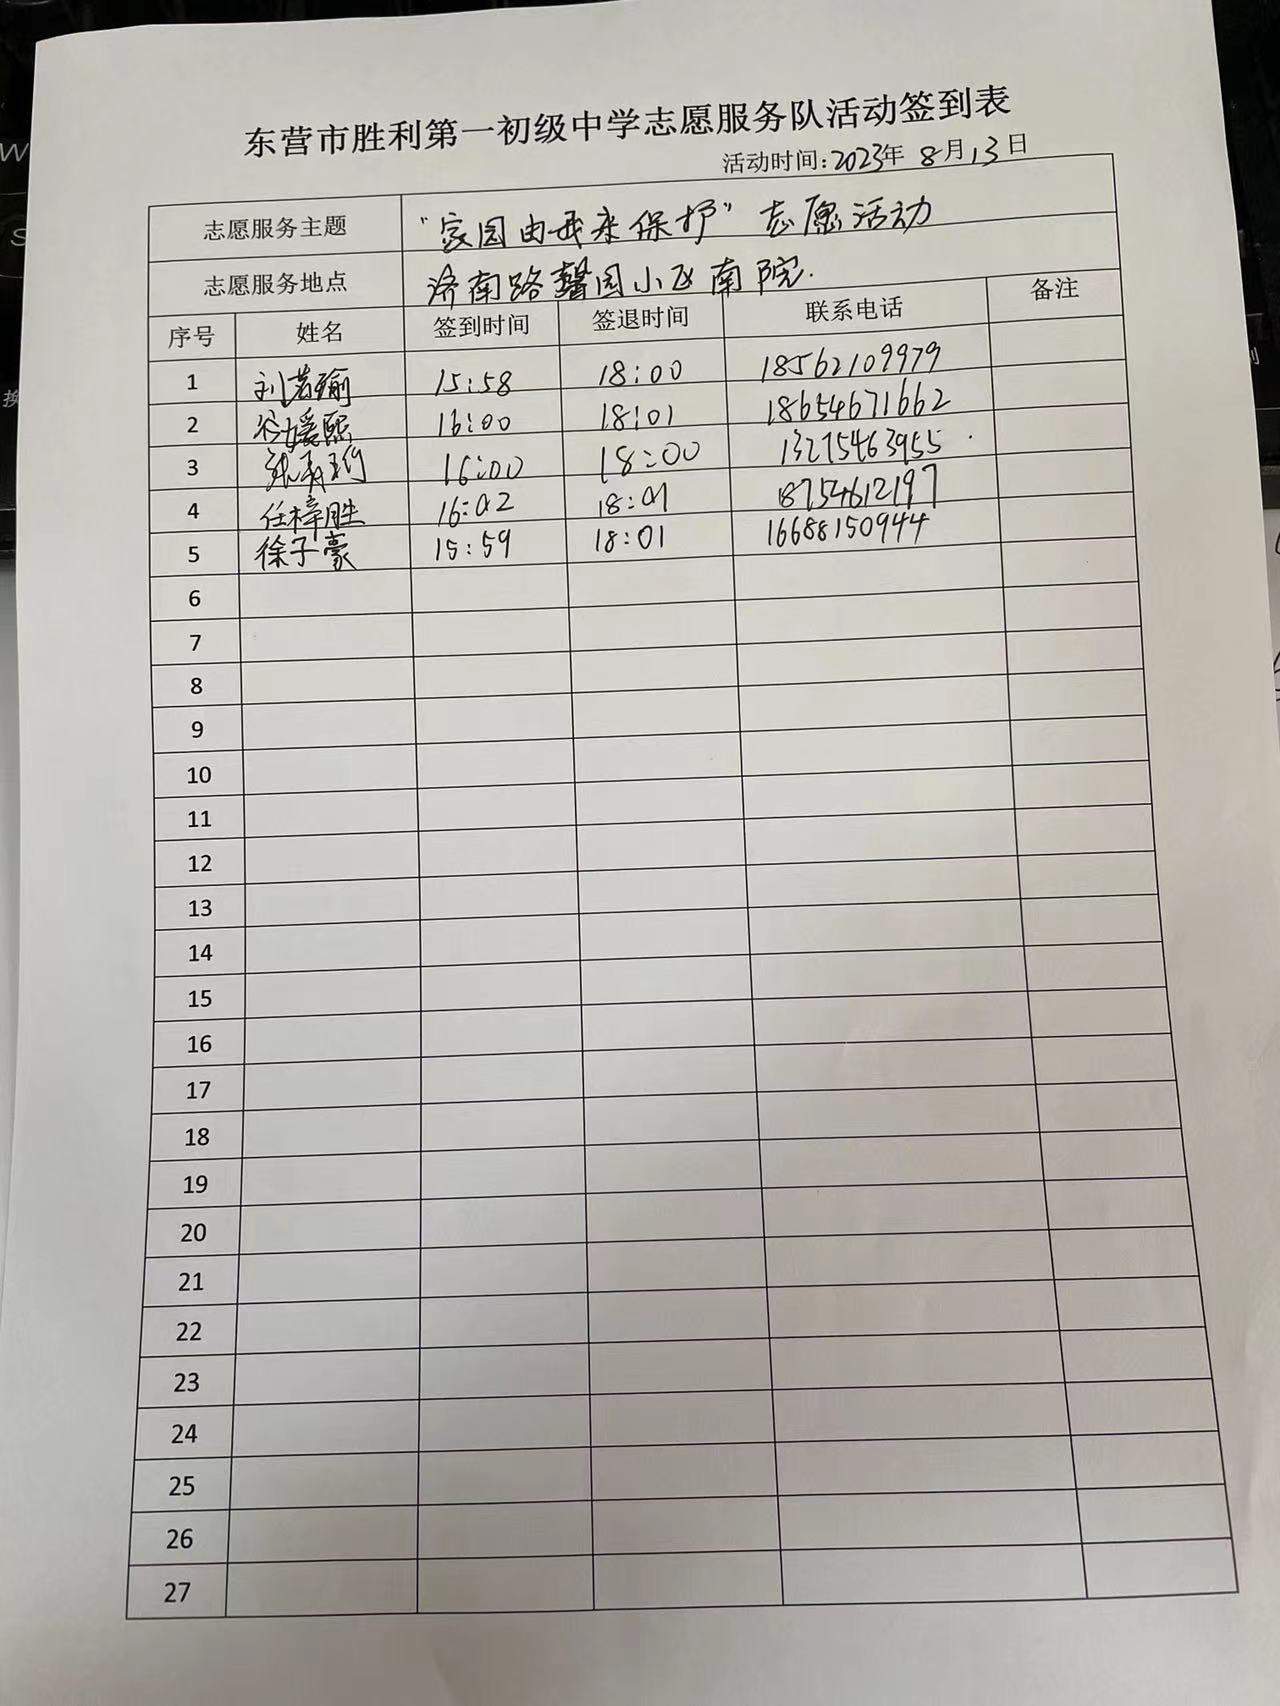 东营市胜利第一初级中学志愿服务队活动签到表
活动时间:2023年 8月13日
志愿服务主题 “家园由我来保护”志愿活动
志愿服务地点 济南路馨园小区南院.
序号 姓名 签到时间 签退时间 联系电话 备注
1 刘若瑜 15:58 18:00 18562109979
2 徐媛熙 16:00 18:01 18654671662
3 16:00 18:00 13275463955
4 任梓胜 16:02 18:01 18754612197
5 徐子豪 15:59 18:01 16688150944
6
7
8
9
10
11
12
13
14
15
16
17
18
19
20
21
22
23
24
25
26
27